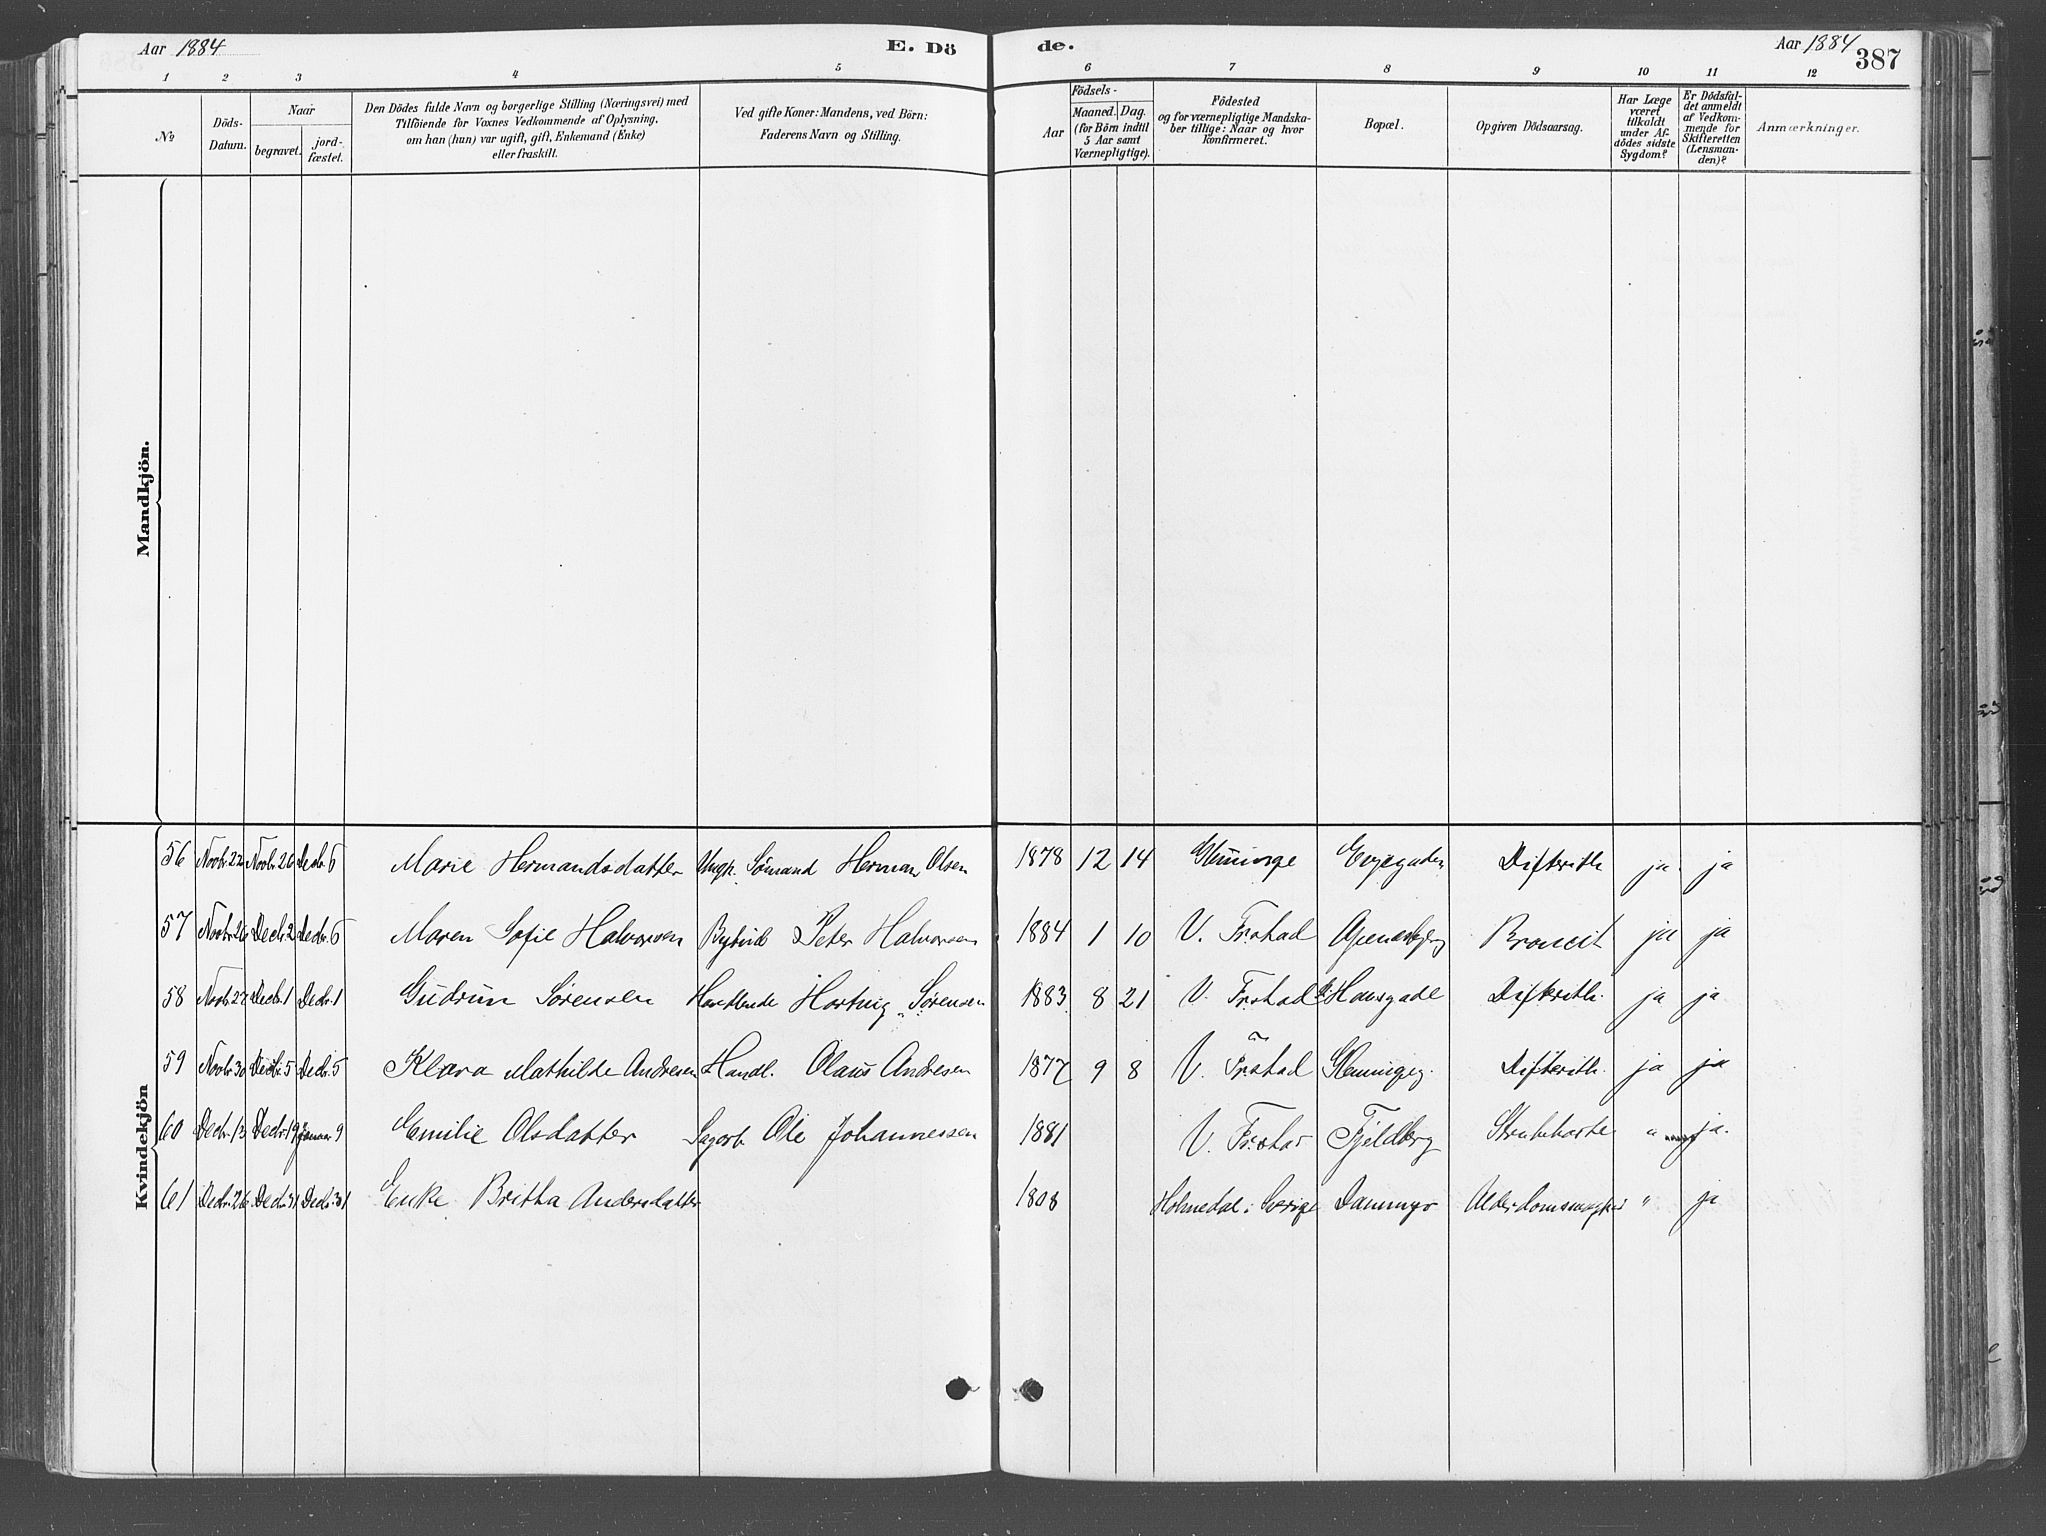 Aar 1884 E. Dö de. Aar 1884 387
1 2 3 4 5 6 7 8 9 10 11 12
No
Döds-Datum.
Naar
begravet.
jord-fæstet.
Den Dödes fulde Navn og borgerlige Stilling (Næringsvei) med
Tilföiende for Voxnes Vedkommende af Oplysning,
om han (hun) var ugift, gift, Enkemand (Enke)
eller fraskilt.
Ved gifte Koner: Mandens, ved Börn:
Faderens Navn og Stilling.
Födsels-
Aar
Maaned. Dag.
(for Börn indtil
5 Aar samt
Værnepligtige).
Födested
og for værnepligtige Mandska-
ber tillige: Naar og hvor
konfirmeret.
Bopæl.
Opgiven Dödsaarsag.
Har Læge
været
tilkaldt
under Af-
dödes sidste
Sygdom?
Er Dödsfal-
det anmeldt
af Vedkom-
mende for
Skifteretten
(Lensman-
den)?
Anmærkninger.
Mandkjön.
Kvindekjön
56 Novbr. 22 Novbr. 26 Decbr. 6 Marie Hermandsdatter Ungk. Sömand Herman Olsen 1878 12 14 Glemminge Difterith ja ja
57 Novbr. 26 Decbr. 2 Decbr. 6 Maren Sofie Halvorsen Peter Halvorsen 1884 1 10 V. Frstad Broncit ja ja
58 Novbr. 27 Decbr. 1 Decbr. 1 Gudrun Sørensen Handlende Hartvig Sørensen 1883 8 21 V. Frstad Difterith. ja ja
59 Novbr. 30 Decbr. 5 Decbr. 5 Klara Mathilde Andresen Handl. Olaus Andresen 1877 9 8 V. Frstad Glemmingeg. Difterith. ja ja
60 Decbr. 13 Decbr. 19 Januar 9 Emilie Olsdatter Sagarb. Ole Johannessen 1881 V. Frstad Fjeldberg Strubehoste " ja.
61 Decbr. 26 Decbr. 31 Decbr. 31 Enke Britha Andersdatter 1808 Holmedal i Sverige Dammyr Alderdomssvaghed " ja